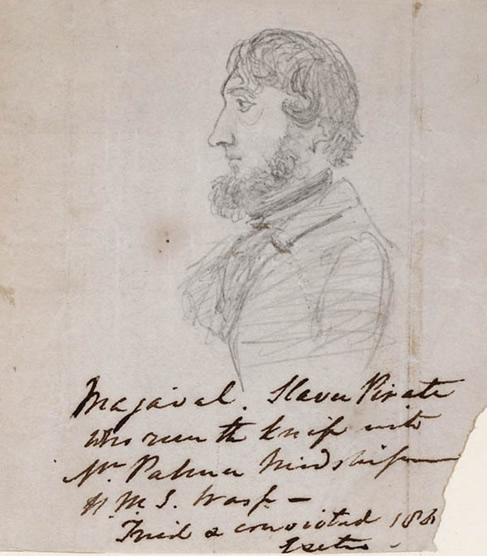 Majaval. Slaver Pirate
who run the knife into
Mr Palmer Midshipman
H.M.S. Wasp —
Tried & convicted 184
Exeter.